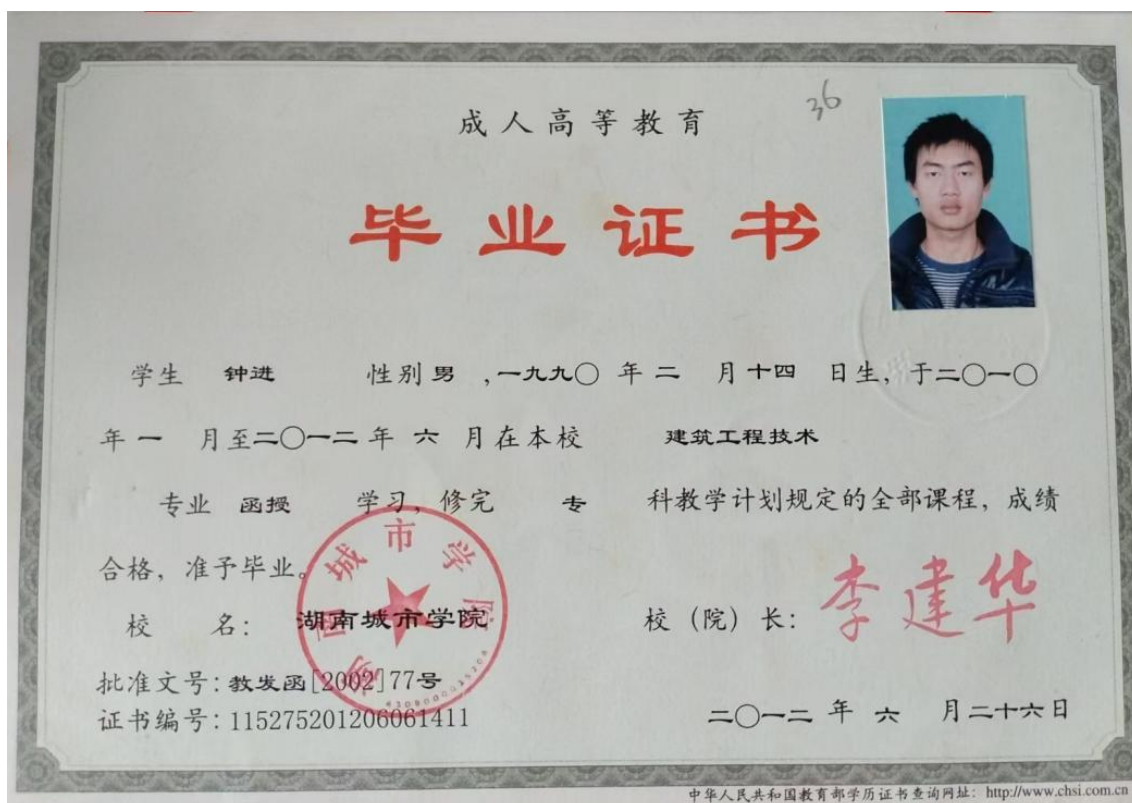 成人高等教育
36
毕业证书
学生 钟进 性别 男 ,一九九〇 年 二 月 十四 日生, 于二〇一〇
年 一 月至二〇一二 年 六 月在本校 建筑工程技术
专业 函授 学习, 修完 专 科教学计划规定的全部课程, 成绩
合格, 准予毕业。
校 名: 湖南城市学院
校 (院) 长: 李建华
湖南城市学院
批准文号: 教发函[2002]77号
证书编号: 115275201206061411
二〇一二 年 六 月二十六日
中华人民共和国教育部学历证书查询网址: http://www.chsi.com.cn